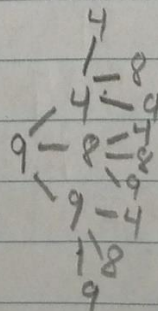 4
8
4
9
4
9 8 8
9
9 4
8
9